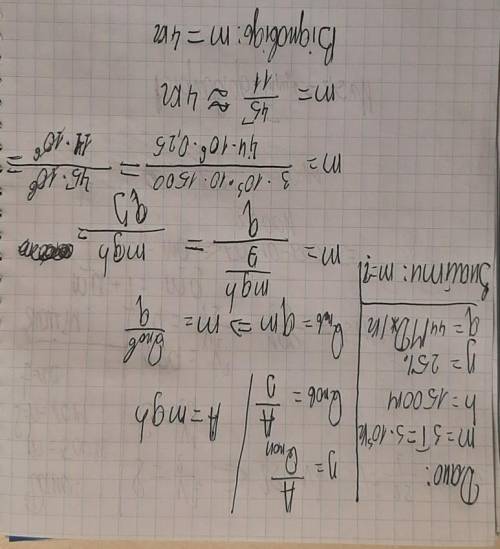 Дано:
m=3T=3·10³кг
h=1500м
η=25%
q=44МДж/кг
Знайти: m-?
η=A/Qпов
Qпов=A/η
A=mgh
Qпов=qm => m=Qпов/q
m=(mgh/η)/q=mgh/qη=
m=3·10³·10·1500/44·10⁶·0,25=45·10⁶/11·10⁶=
m=45/11≈4кг
Відповідь: m=4кг